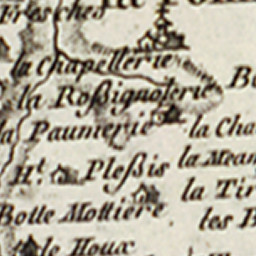 Fresches
la Chapellerie
la Roßignolerie
la Paumerie
la Cha
Ht. Pleßis
la Mean
la Tir
Botte Mottiere
les B
le Houx